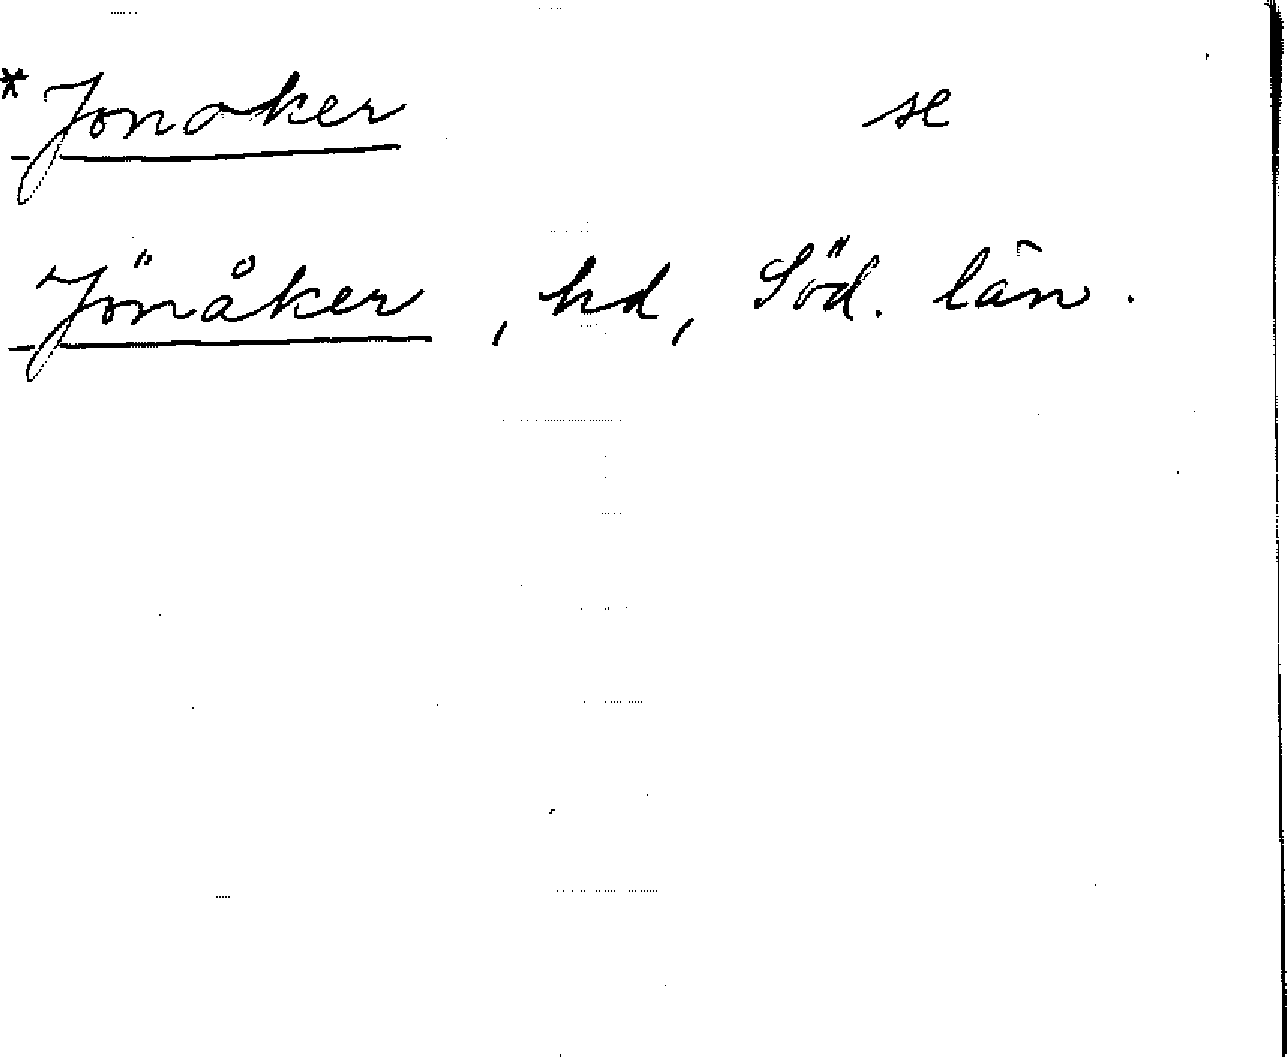 *Jonaker se
Jönåker, hd, Söd. län.